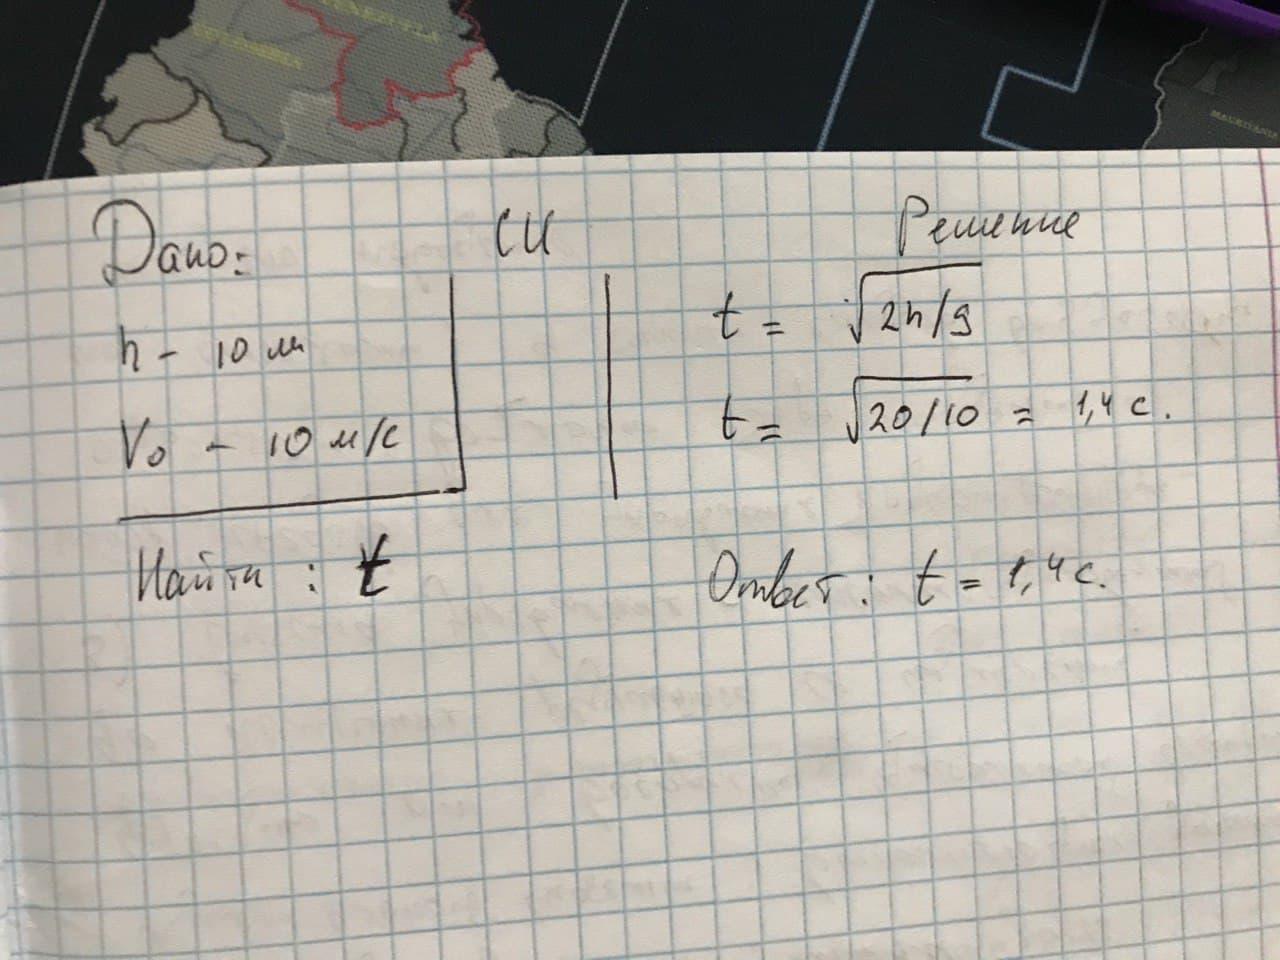 Дано:
СИ
Решение
h - 10 м
V₀ - 10 м/с
Найти : t
t = √2h/g
t = √20/10 = 1,4 с.
Ответ : t = 1,4 с.